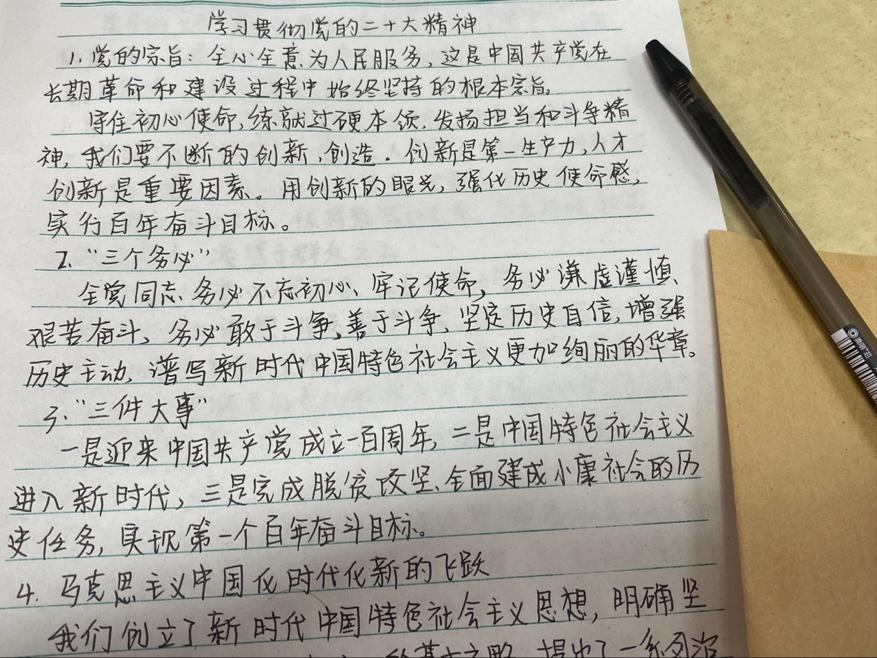 学习贯彻党的二十大精神
1、党的宗旨：全心全意为人民服务，这是中国共产党在
长期革命和建设过程中始终坚持的根本宗旨。
守住初心使命，练就过硬本领，发扬担当和斗争精
神，我们要不断的创新，创造。创新是第一生产力，人才
创新是重要因素。用创新的眼光，强化历史使命感，
实行百年奋斗目标。
2、“三个务必”
全党同志务必不忘初心、牢记使命，务必谦虚谨慎、
艰苦奋斗，务必敢于斗争、善于斗争，坚定历史自信，增强
历史主动，谱写新时代中国特色社会主义更加绚丽的华章。
3、“三件大事”
一是迎来中国共产党成立一百周年，二是中国特色社会主义
进入新时代，三是完成脱贫攻坚、全面建成小康社会的历
史任务，实现第一个百年奋斗目标。
4、马克思主义中国化时代化新的飞跃
我们创立了新时代中国特色社会主义思想，明确坚
的基本方略，提出了一系列治